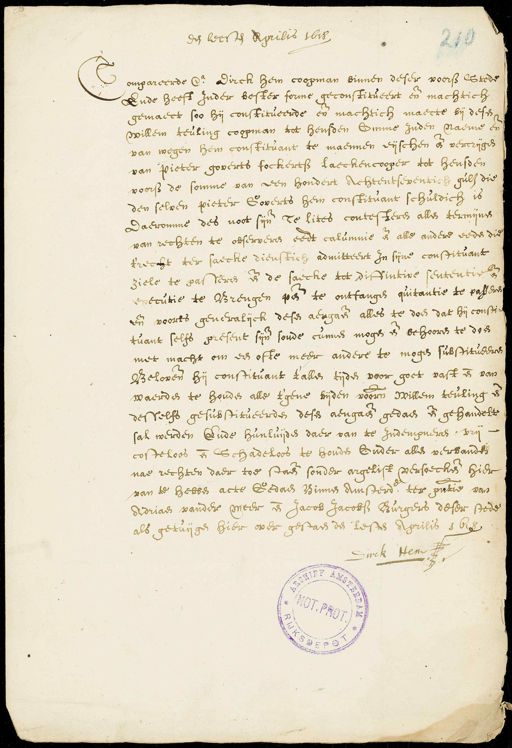 den lesten Aprilis 1618
210
Compareerde Dirck Hem coopman binnen deser voorss Stede
Ende heeft inder bester forme geconstitueert en machtich
gemaect soo hij constitueerde en machtich maecte bij desen
Willem teuling coopman tot heusden omme inden naeme en
van wegen hem constituant te maenen eijschen en vercrijgen
van pieter goverts fockerts laeckencooper tot heusden
voorss de somme van een hondert achtentseventich guls die
den selven pieter goverts hem constituant schuldich is
Daeromme des noot sijnde te lites contesteren alle termijnen
van rechten te observeren eedt calumnie en alle andere eeden die
t'recht ter saecke dienstich admitteert in sijne constituants
ziele te presteren en de saecke tot diffinitive sententie en
executie te brengen te ontfangen quitantie te passeren
en voorts generalijck desen aengaende alles te doen dat hij constituant
tuant selfs present sijnde soude cunnen mogen en behooren te doen
met macht om een ofte meer andere te mogen substitueren
Beloven hij constituant t'allen tijden voor goet vast en van
waerden te houden alle t'gene bijden voorn Willem teuling en
desselfs gesubstitueerden desen aengaende gedaen en gehandelt
sal werden Ende hunluijden daer van te indemneren vrij
costeloos en schadeloos te houden onder alle verbanden
nae rechten daer toe staende sonder argelist versoecken hier
van te hebben acte Gedaen binnen Amsterd ter presentie van
Adriaen vander Meer en Jacob Jacobss Burgers deser stede
als getuijgen hier over gestaen den lesten Aprilis 1618
Dirck Hem
ARCHIEF AMSTERDAM
NOT. PROT.
RIJKSDEPOT